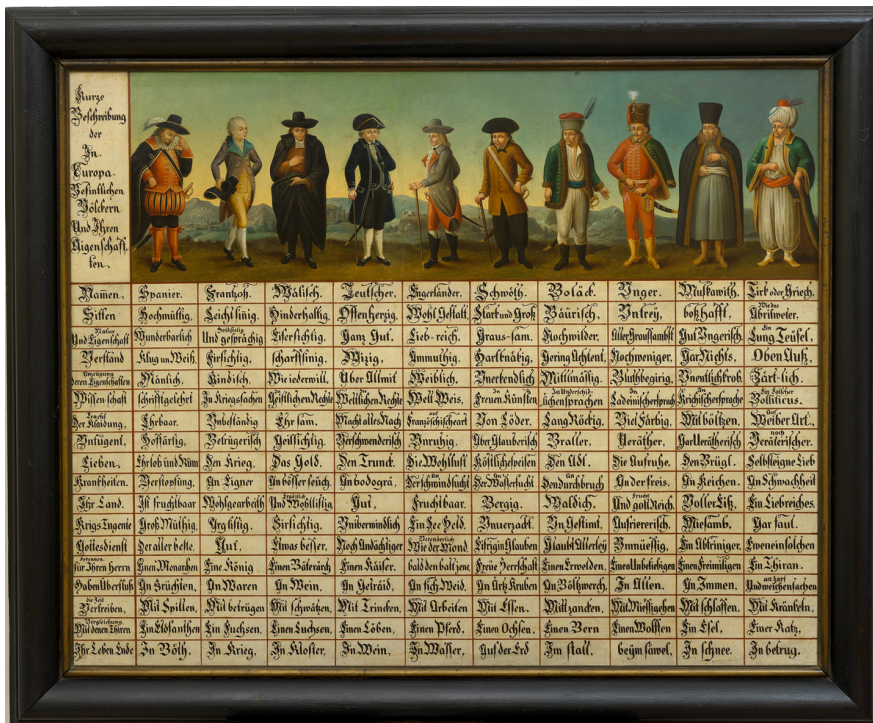 Kurze
Beschreibung
der
In
Europa
Befintlichen
Völckern
Und Ihren
Aigenschaff-
ten.
Namen. Spanier. Frantzoß. Wälisch. Teutscher. Engerländer. Schwöth. Boläck. Unger. Muskawith. Tirk oder Griech.
Sitten Hochmüttig, Leicht sinig. Hinderhaltig. Offenherzig. Wohl Gestalt. Starck und Groß Bäurisch. Untrey, boßhafft. Wie das Abrilweter.
Natur Und Eigenschaft Wunderbarlich Holdseelig Und gesprächig Eifersichtig. Ganz Gut. Lieb-reich. Graus-sam. Hochwilder. Aller Graussambst. Gut Ungerisch. Ein Lung Teüfel.
Verstand Klug un Weiß, Firsichtig, scharffsinig. Wizig. Ammuthig. Hartknäbig, Gering Achtent. Nochweniger. Gar Nichts. Oben Auß.
Anzeügung deren Eigenschaften Mänlich, Kindisch. Wie iederwill. Über Allmit Weiblich, Unerkendlich Mittlmässig. Bluthbegirig. Unentlichkrob. Zärt-lich.
Wissenschaft schrifftgelehrt In Kriegssachen Geistlichen Rechte Weltlichen Rechte Welt Weis, Freuen Künsten In Underschidlichen sprachen In Ladeinischer sprach In Krichischer sprache Ein Falscher Bolliticus.
Tracht Der Klaidung. Ehrbaar. Unbeständig Ehrsam. Macht alles Nach auf Französische art Von Löder. Lang Röckig, Viel Färbig. Mit böltzen. Auf Weiber Art.
Untugent. Hoffärtig. Betrügerisch Geilsichtig. Verschwenderisch Unruhig. Aber Glauberisch Braller. Veräther. Gar Verätherisch noch Veräterischer.
Lieben. Ehrlob und Rüm Den Krieg. Das Gold. Den Trunck. Die Wohllust Köstliche speisen Den Adl. Die Aufruhe. Den Brügl. Selbsteigne Lieb
Krankheiten. Verstopfung. An Eigner An bösser seüch. An bodogrä. Der schwindsucht Der Wassersucht Den durchbruch An der freis. An Keichen. An Schwachheit
Ihr Land. Ist fruchtbaar Wohlgearbeith Ergötzlich Und Wohllistig Gut. Fruchtbaar. Bergig. Waldich. Frucht Und gold Reich. Voller Eiß. Ein Liebreiches.
Krigs Tugente Groß Müthig, Arg listig. Firsichtig. Uniberwindlich Ein See Held. Unverzackt. Un Gestimt. Aufriererisch. Miesamb. Gar faul.
Gottesdienst Der aller beste. Gut. Etwas besser. Noch Andächtiger Verenderlich Wie der Mond. Eifrig in Glauben Glaubt Allerley Unmüessig, Ein Abtriniger. Eweneinsolchen
Erkennen für Ihren Herrn Einen Monarchen Eine König Einen Bäterärch Einen Käiser. bald den bald jene. Freie Herrschaft Einen Erwelden. Einen Unbeliebigen Einen Freimiligen Ein Thiran.
Haben Überfluß An Früchten, An Waren An Wein. An Getraid, An fich Weid. An Artz Kruben An Böltzwerch, In Allen. In Immen. An zart Und weichen sachen
die Zeit Vertreiben. Mit Spillen. Mit betrügen Mit schwätzen. Mit Trincken. Mit Arbeiten Mit Essen. Mit zancken. Mit Miessigehen Mit schlaffen. Mit Kränkeln.
Vergleichung Mit denen Thiren Ein Elofanthen Ein Fuchsen, Einen Luchsen, Einen Löben, Einen Pferd. Einen Ochsen. Einen Bern Einen Wolffen Ein Esel, Einer Katz,
Ihr Leben Ende In Böth. In Krieg. In Kloster. In Wein. In Wasser, Auf der Erd Im stall. beÿm sawel, In schnee. In betrug.